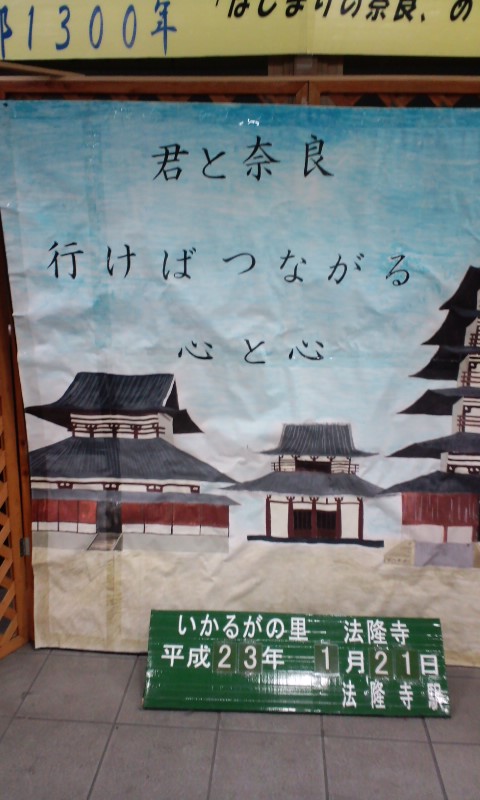 1300年
「はじまりの奈良、め
君と奈良
行けばつながる
心と心
いかるがの里 法隆寺
平成23年 1月21日
法隆寺駅